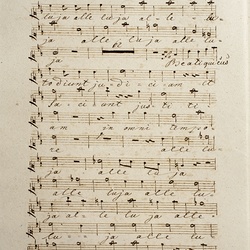 luja alle luja al - le - lu -
ja alle lu ja alle lu -
ja Beati qui cus
todiunt ju - di - ci am et
fa - ci unt jus - ti ti
am ja om ni tem po -
re alle lu
ja alle lu ja
alle luja alle lu -
ja al - le lu ja alle -
lu - - ja alle lu -